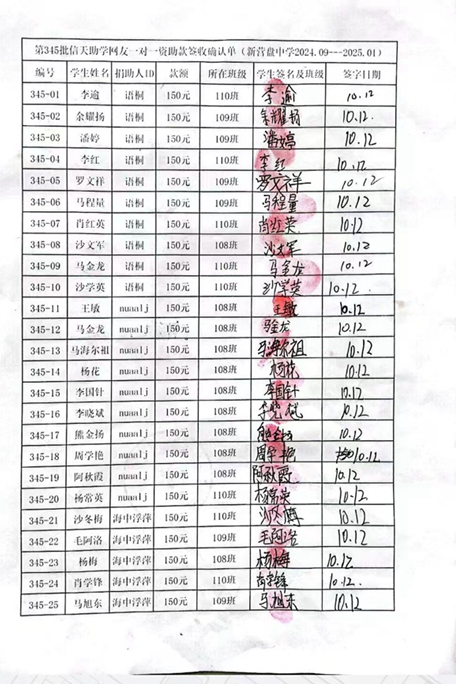 第345批信天助学网友一对一资助款签收确认单（新营盘中学2024.09---2025.01）
编号 学生姓名 捐助人ID 款额 所在班级 学生签名及班级 签字日期
345-01 李逾 语桐 150元 110班 李逾 10.12
345-02 余耀扬 语桐 150元 109班 余耀扬 10.12.
345-03 潘婷 语桐 150元 109班 潘婷 10.12
345-04 李红 语桐 150元 110班 李红 10.12
345-05 罗文祥 语桐 150元 109班 罗文祥 10.12
345-06 马程量 语桐 150元 109班 马程量 10.12
345-07 肖红英 语桐 150元 110班 肖红英 10.12
345-08 沙文军 语桐 150元 108班 沙文军 10.12
345-09 马金龙 语桐 150元 110班 马金龙 10.12
345-10 沙学英 语桐 150元 110班 沙学英 10.12.
345-11 王敏 nuaalj 150元 108班 王敏 10.12
345-12 马金龙 nuaalj 150元 108班 马金龙 10.12
345-13 马海尔祖 nuaalj 150元 108班 马海尔祖 10.12
345-14 杨花 nuaalj 150元 108班 杨花 10.12
345-15 李国针 nuaalj 150元 108班 李国针 10.12
345-16 李晓斌 nuaalj 150元 108班 10.12
345-17 熊金扬 nuaalj 150元 108班 熊金扬 10.12
345-18 周学艳 nuaalj 150元 108班 周学艳 10.12
345-19 阿秋霞 nuaalj 150元 108班 阿秋霞 10.12
345-20 杨常英 nuaalj 150元 110班 杨常英 10.12
345-21 沙冬梅 海中浮萍 150元 110班 沙冬梅 10.12
345-22 毛阿洛 海中浮萍 150元 109班 毛阿洛 10.12
345-23 杨梅 海中浮萍 150元 108班 杨梅 10.12
345-24 肖学锋 海中浮萍 150元 110班 肖学锋 10.12.
345-25 马旭东 海中浮萍 150元 109班 马旭东 10.12